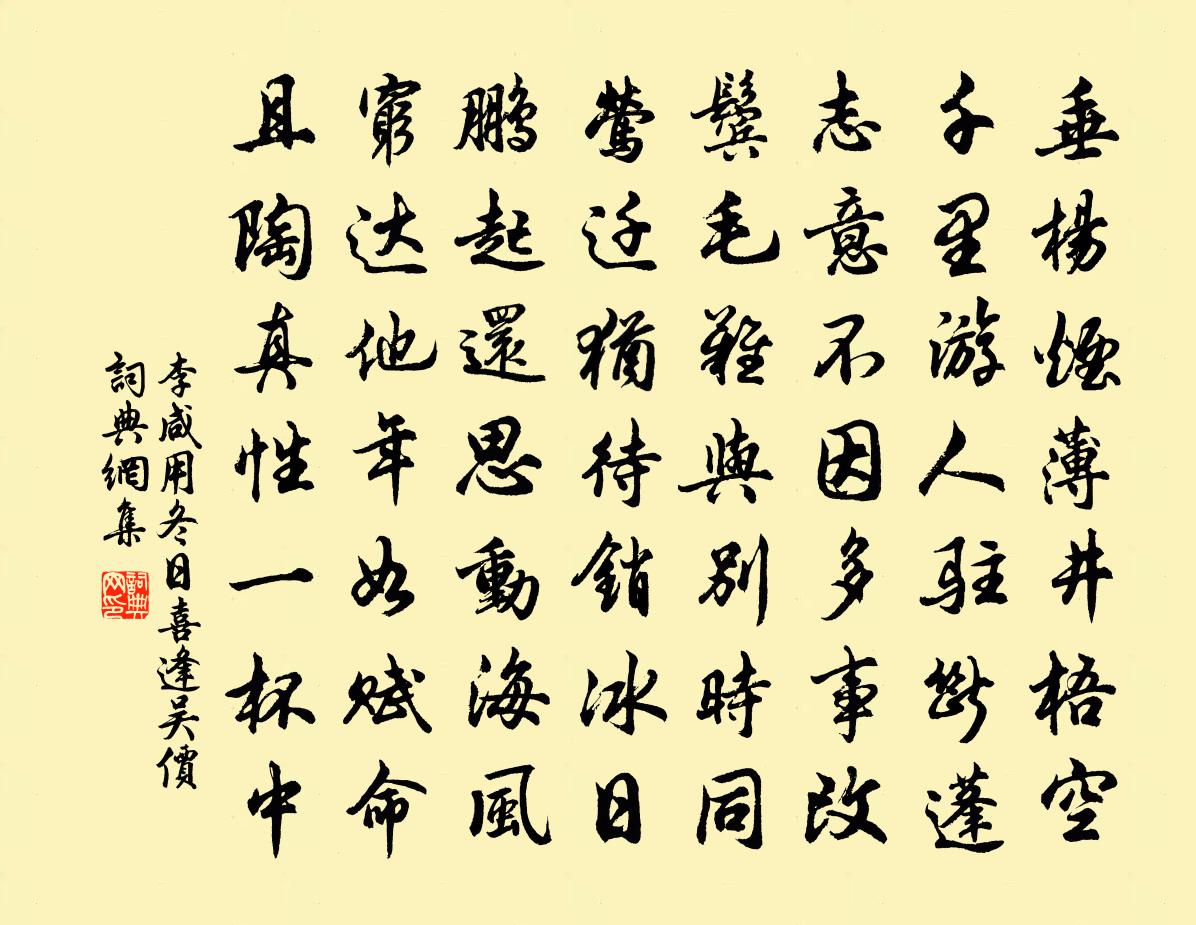 垂楊煙薄井梧空
千里游人駐斷蓬
志意不因多事改
鬢毛難與別時同
鶯迁猶待銷冰日
鵬起還思動海風
窮达他年如賦命
且陶真性一杯中
李咸用冬日喜逢吴價
詞典網集
詞典网印